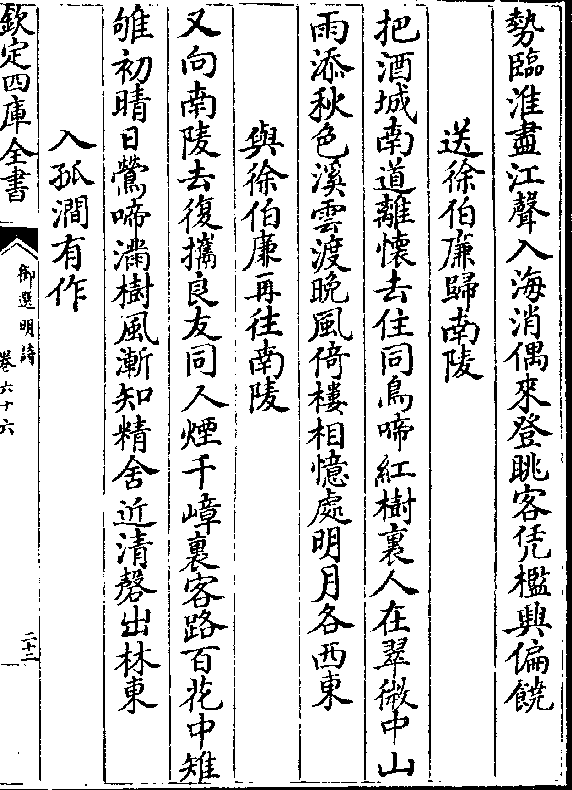 勢臨淮盡江聲入海消偶來登眺客凭檻興偏饒
送徐伯廉歸南陵
把酒城南道離懷去住同鳥啼紅樹裏人在翠微中山
雨添秋色溪雲渡晚風倚樓相憶處明月各西東
與徐伯廉再往南陵
又向南陵去復攜良友同人煙千嶂裏客路百花中雉
雊初晴日鶯啼滿樹風漸知精舍近清磬出林東
入孤澗有作
欽定四庫全書
御選明詩
卷六十六
二十二